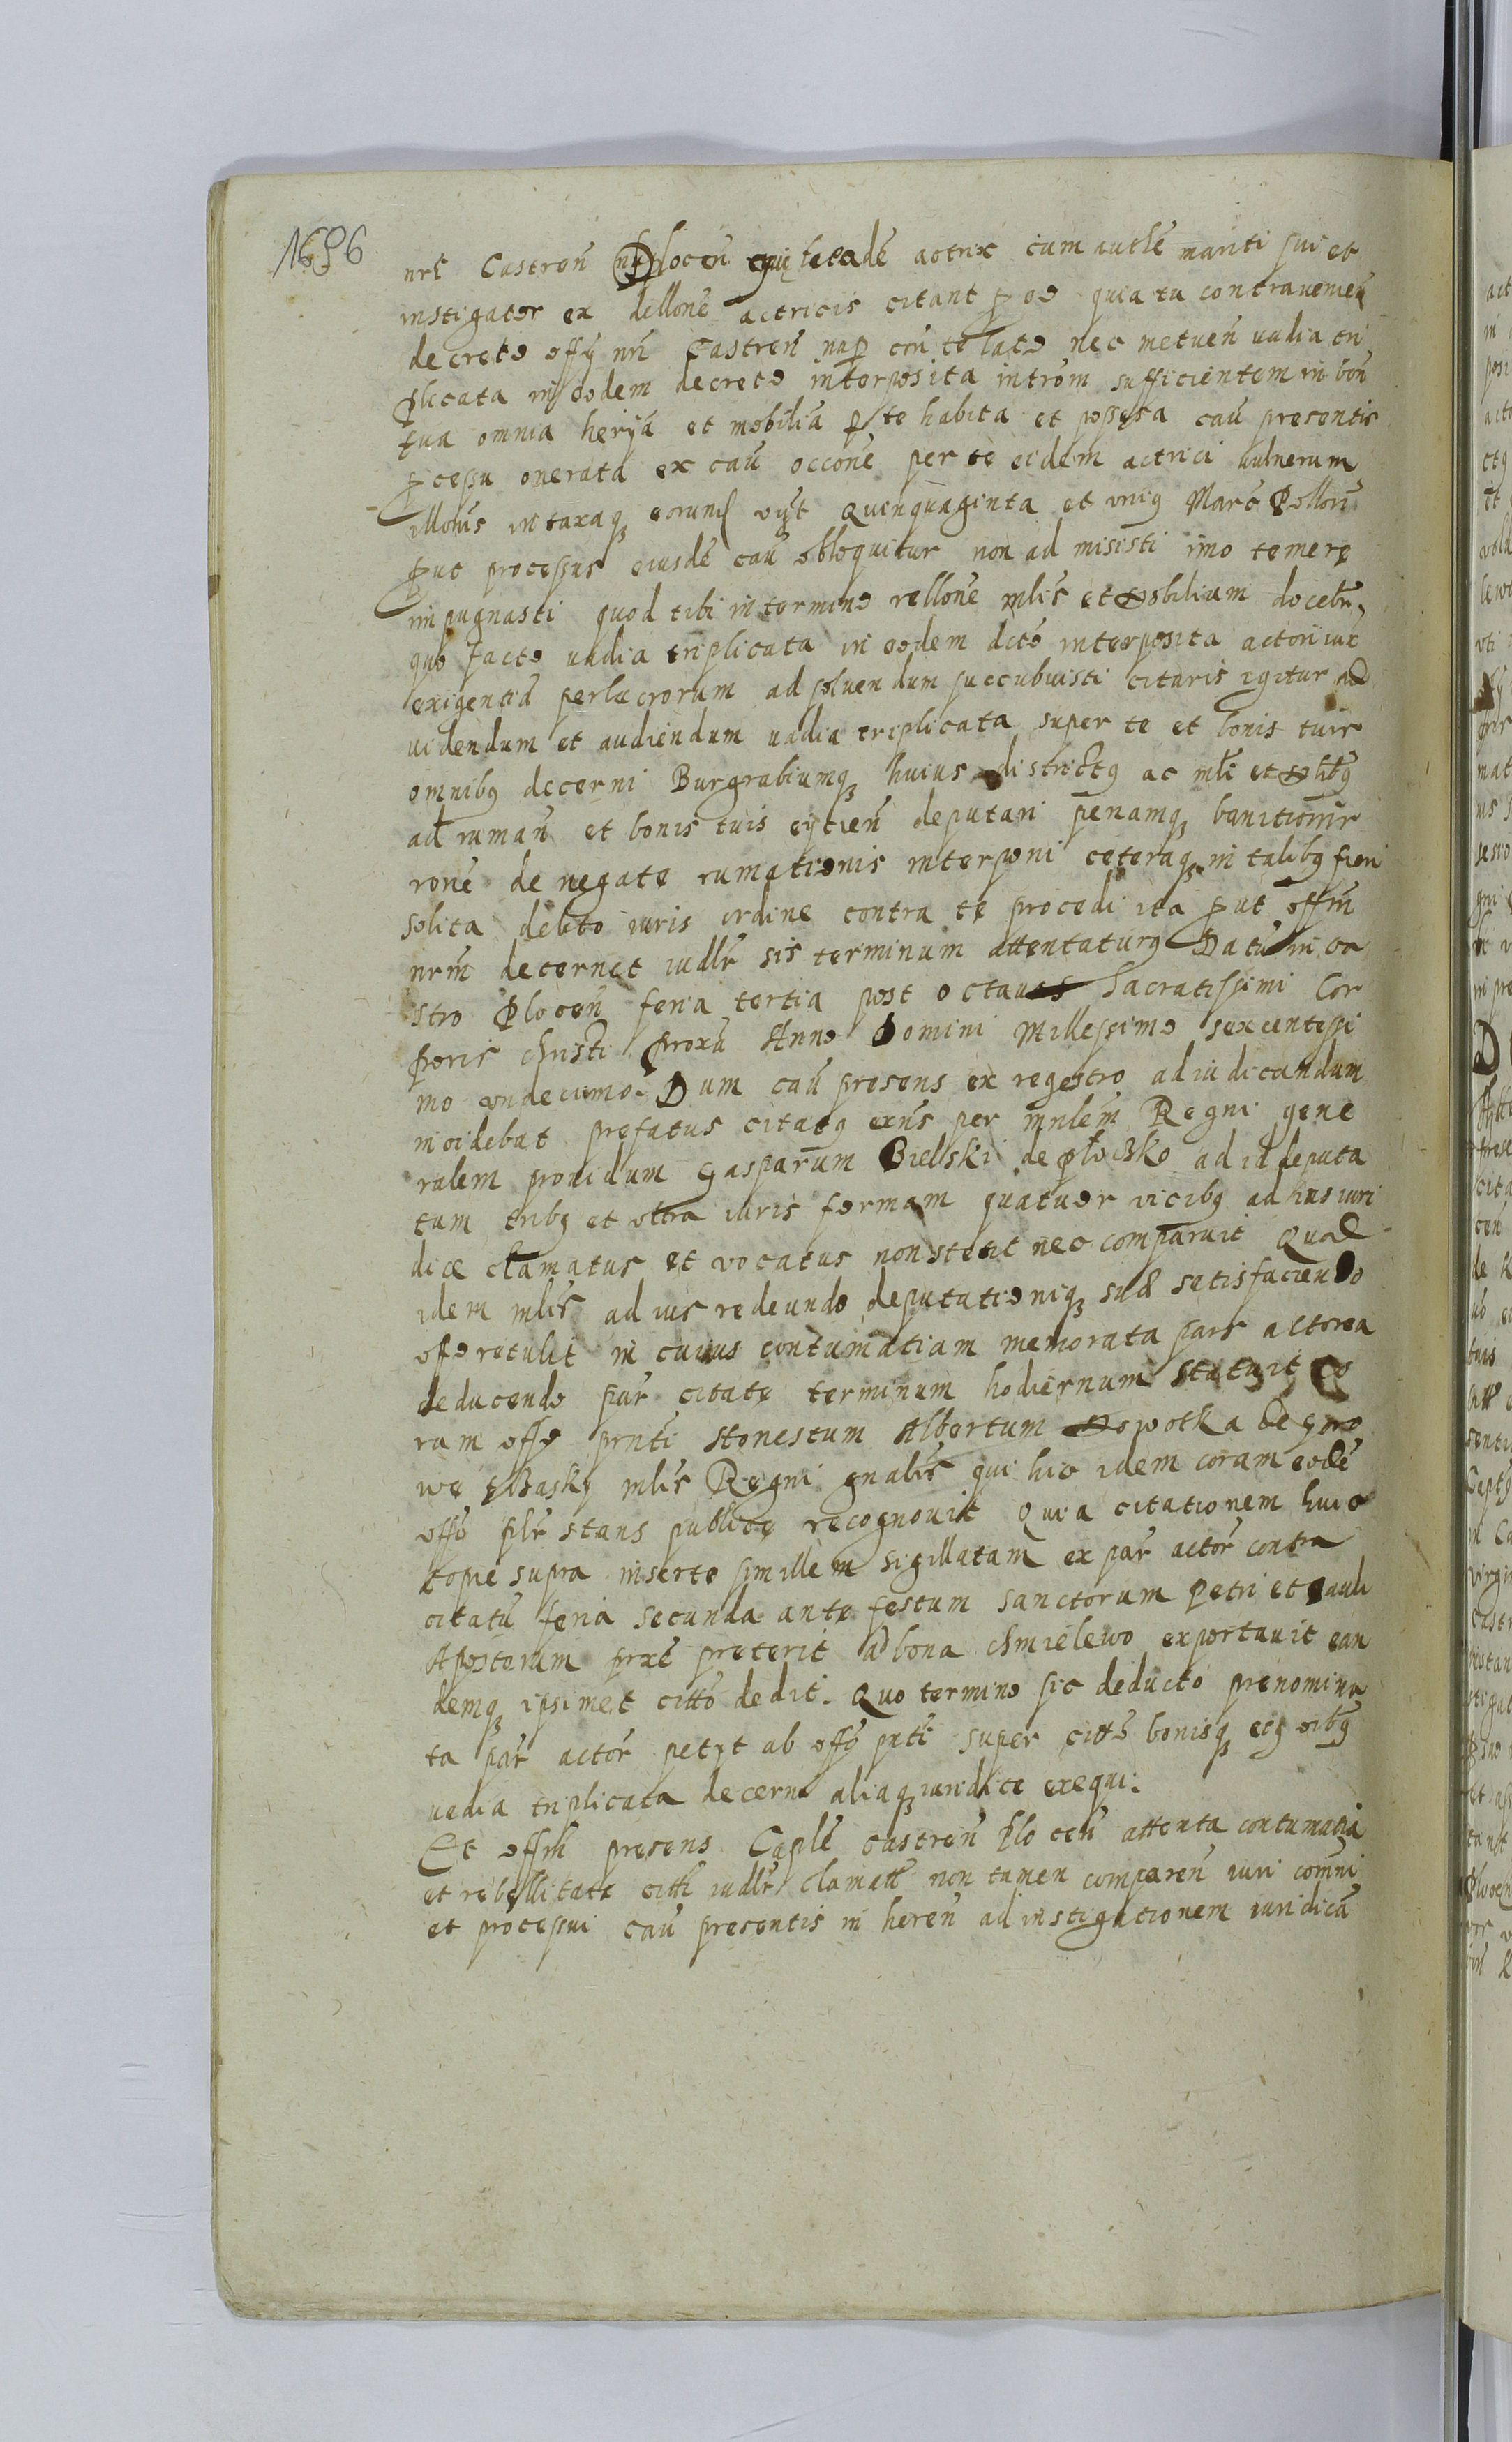 1696
nrũ Castreñ Plocen eadẽ actrix cum authẽ mariti sui et
instigator ex dellone actricis citant p eo quia tu contraueneñ
decreto offỹ nri Castreñ lato nec metueñ uadia tri
plicata in eodem decreto interposita introm sufficientem in boñ
tua omnia herỹa et mobilia p te habita et possessa cau presentis
pcessu onerata ex cau occone per te eidem actrici uulnerum
illorũs intaxaq eorund vyt Quinquaginta et vniq Marc Pollon
put processus eiusdẽ cau obloquitur non ad misisti imo temere
impugnasti quod tibi in termino rellone mlis et Nobilium docebr,
quo facto uadia triplicata in eodem dcto interposita actori iux
exigentia perlucrorum ad soluendum succubuisti citaris igitur ad
uidendum et audiendum uadia triplicata super te et bonis tuis
omnibq decerni Burgrabiumq huius districtq ac mli et Nlibq
ad rumañ et bonis tuis eytieñ deputari penamq banitionis
rone de negate rumationis interponi ceteraq in talibq fieri
solita debito iuris ordine contra te procedi ita put offm
nrm decernet iudlr sis terminum attentaturq Datũ in ca
stro Ploceñ feria tertia post octauas Sacratissimi Cor
poris christi proxa Anno Domini Millessimo sexcentessi
mo vndecimo. Dum cau presens ex regestro ad iudicandum
incidebat prefatus citatq exns per mnlem Regni gene
ralem prouidum Gasparum Bielski de płocsko ad id deputa
tum tribq et vltra iuris formam quatuor vicibq ad ius iuri
dice clamatus et vocatus non stetit nec comparuit Quod
idem mlis ad ius redeundo deputationiq sua satisfaciendo
offo retulit in cuius contumatiam memorata pars actorea
deducendo par citate terminum hodiernum statuit co
ram offo prnti Honestum Albertum Nowotka de Gro
we mlis Regni gnalis qui hic idem coram eodẽ
offo plr stans publice recognouit Quia citationem huic
copie supra inserte simillem sigillatam ex par actor contra
citatũ feria secunda ante festum sanctorum Petri et Pauli
Apostorum prxe preterit ad bona chmielewo exportauit ean
demq ipsimet citto dedit. Quo termino sic deducto prenomina
ta par actor petyt ab offo pnti super citto bonisq eiq oibq
uadia triplicata decerni aliaq iuridice exequi.
Et offm presens Caple castreñ Ploceñ attenta contumatia
et rebellitate citti iudlr clamatt non tamen compareñ iuri comni
et processui cau presentis in hereñ ad instigationem iuridica